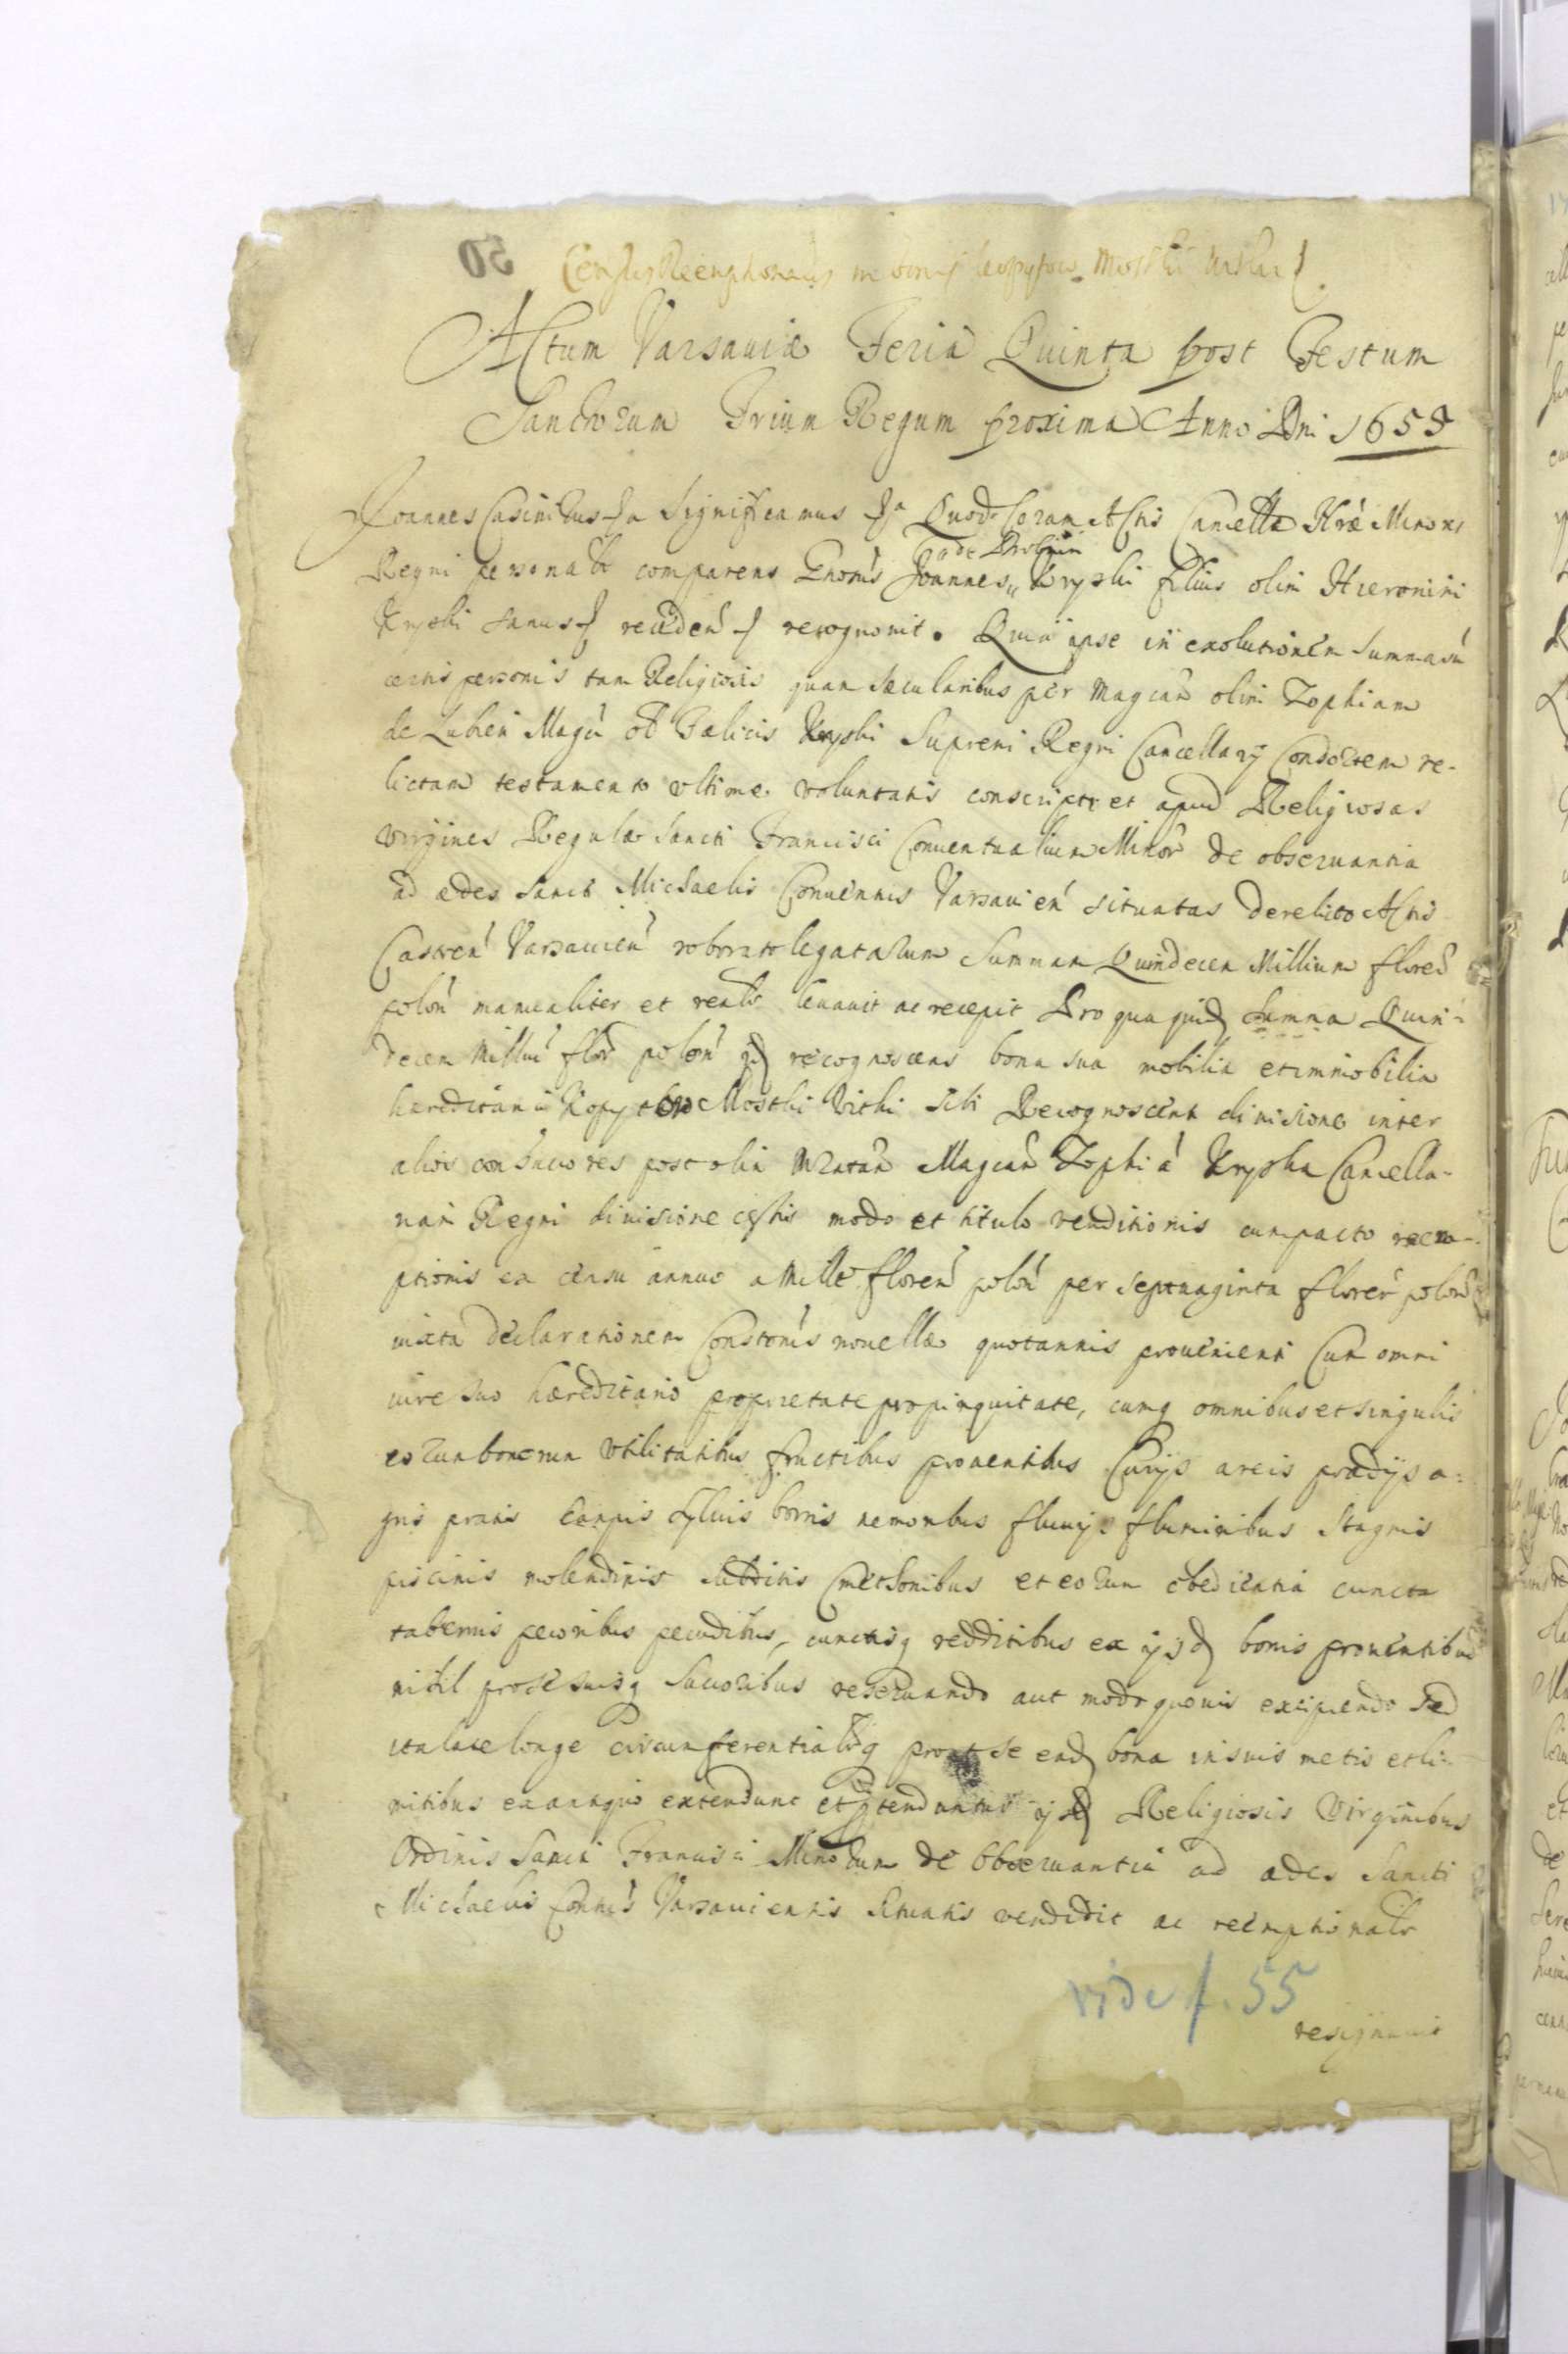 50
Census Reemptionalis in bonis Kopytow Mosthi
Actum Varsauiæ Feria Quinta post Festum
Sanctorum Trium Regum proxima Anno Dni 1655
Joannes Casimirus Significamus Quod Coram Actis Cancellæ Nræ Minoris
à de Drobnin
Regni personalr comparens Gnosus Joannes Kryski filius olim Hieronimi
Kryski sanus recognouit. Quia ipse in exolutionem summarũ
certis personis tam Religiosis quam sæcularibus per Magcam olim Zophiam
de Lubień Magci olì Fælicis Kryski Supremi Regni Cancellarij Consortem re-
lictam testamento vltimæ voluntatis conscripto et apud Religiosas
Virgines Regulæ Sancti Francisci Conuentualium Minor de obseruantia
ad ædes Sancti Michaelis Conuentus Varsauień situatas derelicto Actis
Castren Varsauień roborato legatarum Summam Quindecem Millium floreń
poloń manualiter et realr leuauit ac recepit Pro qua quid Summa Quin-
decem Milliũ flor poloń id recognoscens bona sua mobilia et immobilia
hæreditaria Kopytow Mosthi Vithi sibi Recognoscenti diuisione inter
alios consuccores post olim Magcam Zophiã Kryska Cancella-
riam Regni diuisione modo et titulo venditionis cum pacto reem-
ptionis ex censu annuo a Mille floreń poloń per septuaginta floreń poloń
iuxta declarationem Constonis nouellæ quotannis prouenienti Cum omni
iure suo hæreditario proprietate propinquitate, cumq omnibus et singulis
eorum bonorum vtilitatibus fructibus prouentibus Curijs areis prædijs a-
gris pratis campis syluis borris nemoribus fluuijs fluminibus stagnis
piscinis molendinis subditis Cmethonibus et eorum obedientia cuncta
tabernis pecoribus pecudibus, cunctisq redditibus ex ijsd bonis prouentibus
nihil pro se suisq succoribus reseruando aut modo quouis excipiendo sed
ita late longe circumferentialrq prout se ead bona in suis metis et li-
mitibus ex antiquo extendunt et ijsd Religiosis Virginibus
Ordinis Sancti Francisci Minorum de Obseruantia ad ædes Sancti
Michaelis Conuus Varsauiensis situatis vendidit ac reemptionalr
vide f. 55
resignauit